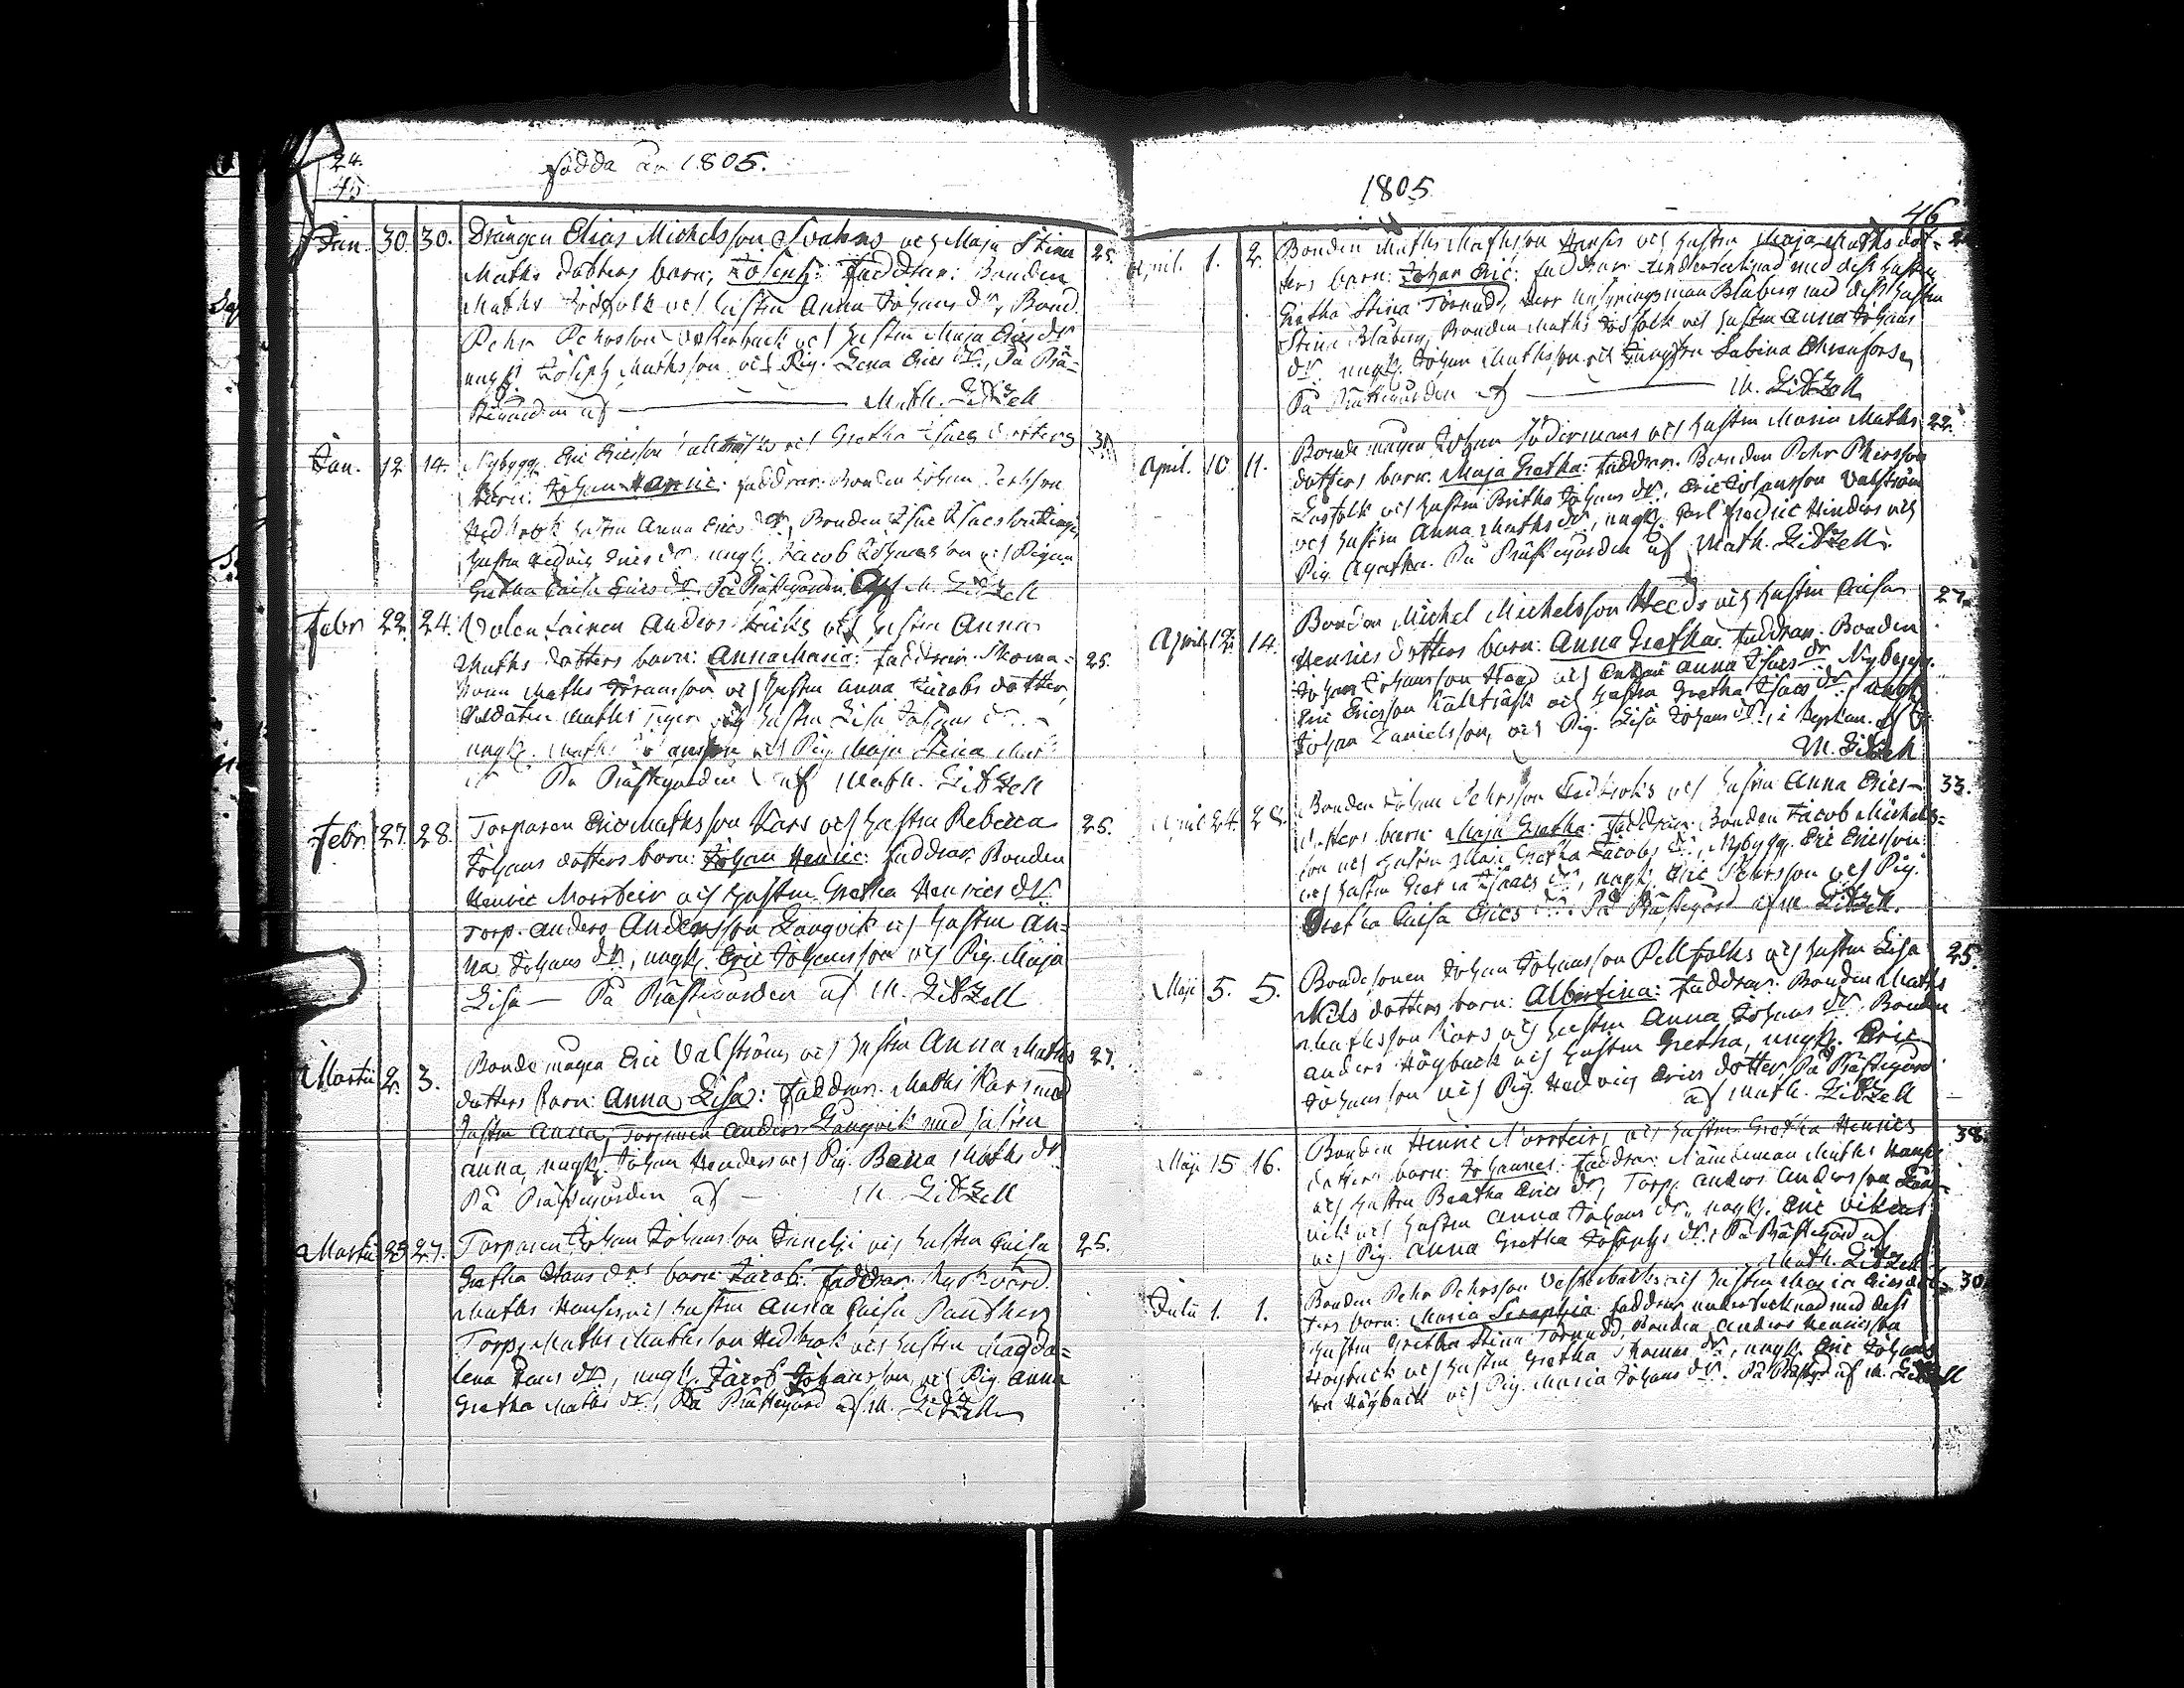 24.
45
födda år 1805.
Jan. 30. 30. Drängen Elias Michelsson Svahns och Maja Stina 25.
Maths dotters barn; Joseph: faddrar: Bonden
Maths Jossfolk och hustru Anna Johans dr, Bond.
Pehr Pehrsson Vesterback och hustru Maja Erics dr
ungk. Joseph Mathsson och Pig. Lena Erics dr., På Prä-
stegården af Math. Litzell
Jan. 12 14. Nybygg. Eric Ericsson och Gretha Isacs dotters 31.
barn: Johan Henric: faddrar: Bonden Johan Pehrsson
Hedkrok hustru Anna Erics dr, Bonden Isac Isacsson
hustru Hedvig Erics dr. ungk. Jacob Johansson och Pigan
Gretha Caisa Erics dr. På Prästegården af M. Litzell
Febr. 22. 24. Anders och hustru Anna
Maths dotters barn: Anna Maria: faddrar: Skoma- 25.
karen Maths Göransson och hustru Anna Jacobs dotter,
Soldaten Maths och hustru Lisa Johans dr.
ungk. Maths och Pig. Maja Stina Mats
dr På Prästegården af Math. Litzell
Febr. 27. 28. Torparen Eric Mathsson Kars och hustru Rebecca 25.
Johans dotters barn: Johan Henric: faddrar: Bonden
Henric Morrbeir och hustru Gretha Henrics dr.
Torp. Anders Andersson Langvik och hustru An-
na Johans dr., ungk. Eric Johansson och Pig. Maja
Lisa — På Prästegården af M. Litzell
Martii 2. 3. Bondemågen Eric Valström och hustru Anna Maths 27.
dotters barn: Anna Lisa: faddrar: Maths Kars med
hustru Anna, Torparen Anders Langvik med hustru
Anna, ungk. Johan Henders och Pig. Berra Maths dr.
På Prästegården af — M. Litzell
Martii 25 27. Torparen Johan Johansson och hustru Caisa 25.
Gretha Hans drs barn: Jacob: faddrar: Kyrkovärd.
Maths Hanses och hustru Anna Caisa Panther
Torp. Maths Mathsson Hedkrok och hustru Magda-
lena Hans dr., ungk. Jacob Johansson, och Pig. Anna
Gretha Maths dr., På Prästegård af M. Litzell
1805
46
April. 1. 2. Bonden Maths Mathsson Hanses och hustru Maja Maths dot-
ters barn: Johan Eric: faddrar undertecknad med dess hustru
Gretha Stina Törnudd, Blåberg med dess hustru
Stina Blåberg, Bonden Maths Jossfolk och hustru Anna Johans
dr. ungk. Johan Mathsson och Jungfru Sabina Ehrenfors
På Prästegården af M. Litzell
April. 10. 11. Bondemågen Johan Södermans och hustru Maria Maths 22.
dotters barn: Maja Gretha: faddrar: Bonden Pehr Phersson
Lassfolk och hustru Britha Johans dr., Eric Johansson Valström
och hustru Anna Maths dr., ungk. Carl Fredric Hinders och
Pig. Agatha. På Prästegården af Math. Litzell.
April 12. 14. Bonden Michel Michelsson Heeds och hustru Caisa 27.
Henrics dotters barn: Anna Gretha: faddrar: Bonden
Johan Johansson Heed och Enkan Anna Isacs dr Nybygg.
Eric Ericsson Källträsk och hustru Gretha Isacs dr, ungk.
Johan Danielsson, och Pig. Lisa Johans dr., i Kyrkan af
M. Litzell
April 24. 28. Bonden Johan Pehrsson Hedkroks och hustru Anna Erics- 33.
dotters barn: Maja Gretha: faddrar: Bonden Jacob Michels-
son och hustru Maja Gretha Jacobs dr, Nybygg. Eric Ericsson
och hustru Gretha Isaacs dr., ungk. Eric Pehrsson och Pig.
Gretha Caisa Erics dr. På Prästegård af M. Litzell.
Maji 5. 5. Bondesonen Johan Johansson Pellfolks och hustru Lisa 25.
Nils dotters barn: Albertina: faddrar: Bonden Maths
Mathsson Kars och hustru Anna Johans dr. Bonden
Anders Högback och hustru Gretha, ungk. Eric
Johansson och Pig. Hedvig Erics dotter På Prästegård
af Math. Litzell
Maji 15 16. Bonden Henric Morrbeirs och hustru Gretha Henrics 38.
dotters barn: Johannes: faddrar: Nämdeman Maths Hanses
och hustru Beatha Erics dr, Torp. Anders Andersson Lång-
vik och hustru Anna Johans dr., ungk. Eric
och Pig. Anna Gretha Josephs dr: På Prästegård af
Math. Litzell
Julii 1. 1. Bonden Pehr Pehrsson Vesterbacks och hustru Maria Erics dot- 30.
ters barn: Maria Seraphia: faddrar undertecknad med dess
hustru Gretha Stina Törnudd, Bonden Anders Henricsson
Högback och hustru Gretha Thomas dr., ungk. Eric Johans-
son Högback och Pig. Maria Johans dr. På Prästgd af M. Litzell